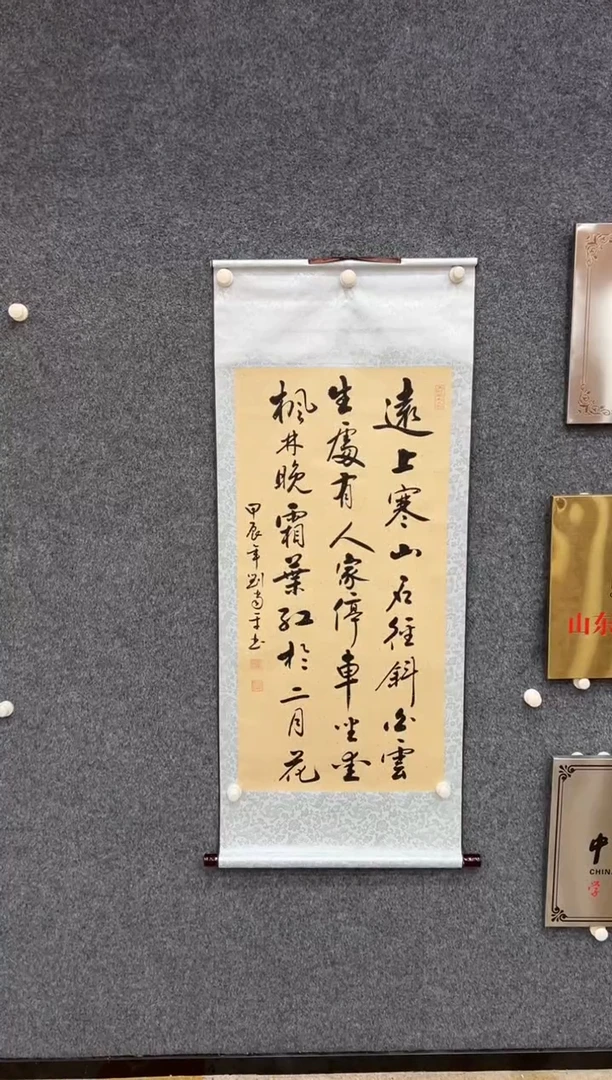 遠上寒山石徑斜白雲
生處有人家停車坐愛
楓林晚霜葉紅於二月花
甲辰年劉尚平书
山东
中
CHIN
学